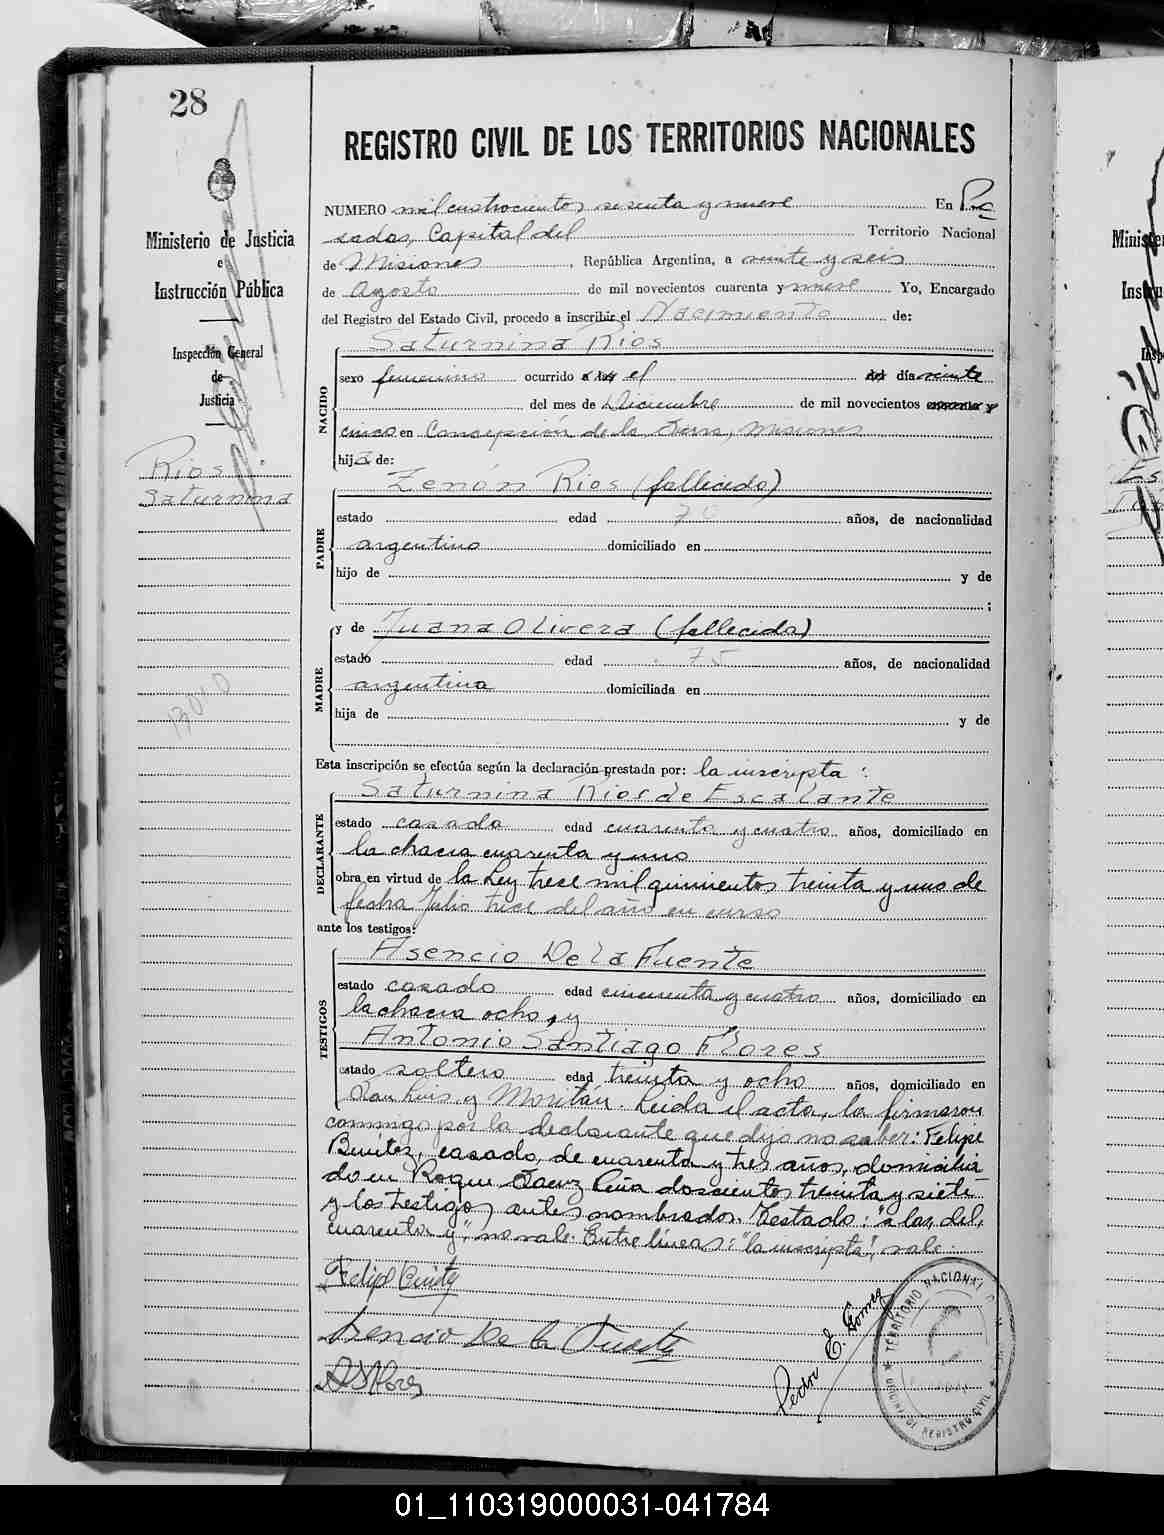 28
REGISTRO CIVIL DE LOS TERRITORIOS NACIONALES
Ministerio de Justicia
e
Instrucción Pública
Inspección General
de
Justicia
Rios
Saturnina
NUMERO mil cuatrocientos sesenta y nueve En Po
sadas, Capital del Territorio Nacional
de Misiones, República Argentina, a veinte y seis
de Agosto de mil novecientos cuarenta y nueve Yo, Encargado
del Registro del Estado Civil, procedo a inscribir el Nacimiento de:
NACIDO
Saturnina Rios
sexo femenino ocurrido a las el día veinte
del mes de Diciembre de mil novecientos
cinco en Concepción de la Sierra, Misiones
hija de:
PADRE
Zenón Rios (fallecido)
estado edad 70 años, de nacionalidad
argentino domiciliado en
hijo de y de
;
MADRE
y de Juana Olivera (fallecida)
estado edad 75 años, de nacionalidad
argentina domiciliada en
hija de y de
Esta inscripción se efectúa según la declaración prestada por: la inscripta:
DECLARANTE
Saturnina Rios de Escalante
estado casada edad cuarenta y cuatro años, domiciliado en
la chacra cuarenta y uno
obra en virtud de la Ley trece mil quinientos treinta y uno de
fecha Julio trece del año en curso
ante los testigos:
TESTIGOS
Asencio De la Fuente
estado casado edad cincuenta y cuatro años, domiciliado en
la chacra ocho, y
Antonio Santiago Flores
estado soltero edad treinta y ocho años, domiciliado en
San Luis y Moritán. Leida el acta, la firmaron
conmigo por la declarante que dijo no saber: Felipe
Benítez, casado, de cuarenta y tres años, domicilia
do en Roque Saenz Peña doscientos treinta y siete
y los testigos antes nombrados. Testado: "a las, del,
cuarenta y", no vale. Entre líneas: "la inscripta", vale.
Asencio De la Fuente
A S Flores
Pedro E. Gomez
TERRITORIO NACIONAL
OFICINA DE REGISTRO CIVIL
Minister
Instru
Insp
01_110319000031-041784